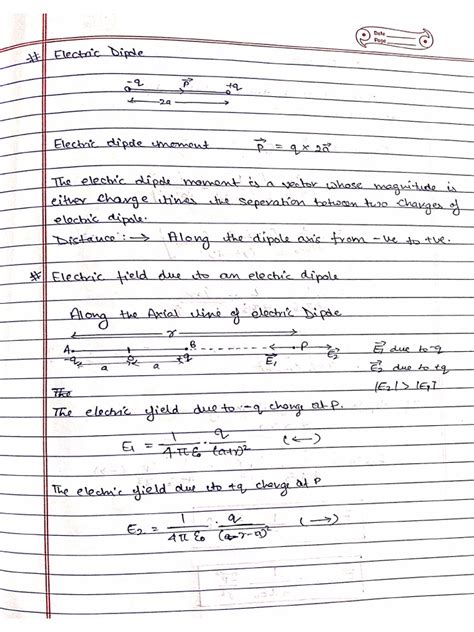 Date
Page
# Electric Dipole
-q P⃗ +q
2a
Electric dipole moment P⃗ = q × 2a⃗
The electric dipole moment is a vector whose magnitude is
either charge times the seperation between two charges of
electric dipole.
Distance :→ Along the dipole axis from -ve to +ve.
# Electric field due to an electric dipole
Along the Axial line of electric Dipole
r
A B P E⃗1 due to -q
-q O +q E⃗1 E⃗2 E⃗2 due to +q
a a |E2| > |E1|
The
The electric yield due to -q charge at P.
E1 = 1/4πε0 · q/(a+r)² (←)
The electric yield due to +q charge at P
E2 = 1/4πε0 · q/(a-r-a)² (→)